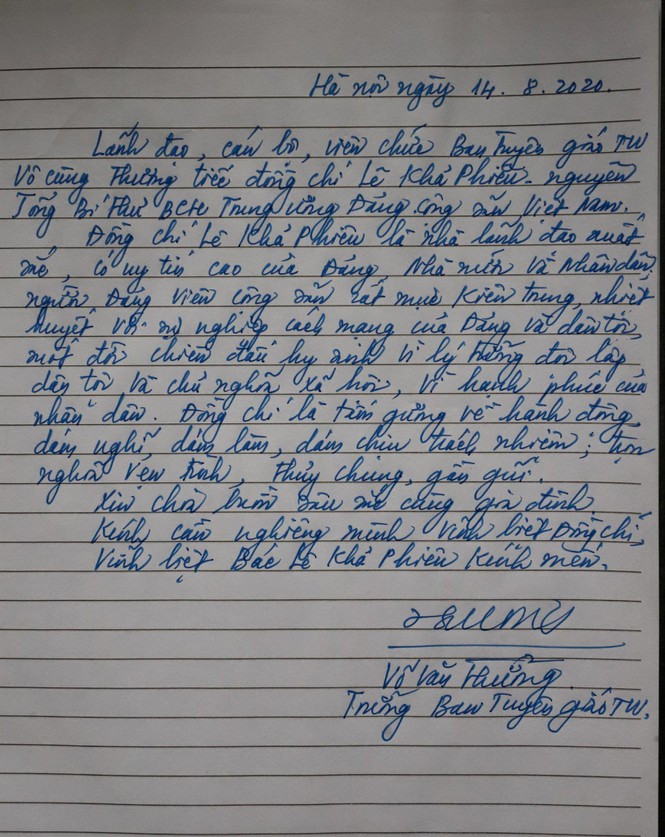 Hà nội ngày 14. 8. 2020.
Lãnh đạo, cán bộ, viên chức Ban Tuyên giáo TW
Vô cùng thương tiếc đồng chí Lê Khả Phiêu - nguyên
Tổng Bí thư BCH Trung ương Đảng Cộng sản Việt Nam.
Đồng chí Lê Khả Phiêu là nhà lãnh đạo xuất
sắc, có uy tín cao của Đảng, Nhà nước và Nhân dân,
người Đảng viên cộng sản rất mực kiên trung, nhiệt
huyết với sự nghiệp cách mạng của Đảng và dân tộc,
một đời chiến đấu, hy sinh vì lý tưởng độc lập
dân tộc và chủ nghĩa xã hội, vì hạnh phúc của
nhân dân. Đồng chí là tấm gương về hành động,
dám nghĩ, dám làm, dám chịu trách nhiệm; trọn
nghĩa vẹn tình, thủy chung, gần gũi.
Xin chia buồn sâu sắc cùng gia đình.
Kính cẩn nghiêng mình vĩnh biệt Đồng chí,
Vĩnh biệt Bác Lê Khả Phiêu kính mến.
Võ Văn Thưởng
Trưởng Ban Tuyên giáo TW.